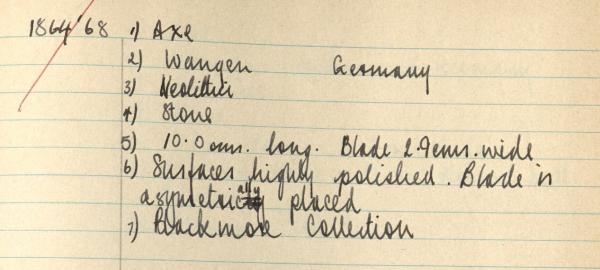 1864/'68 1) Axe
2) Wangen Germany
3) Neolithic
4) Stone
5) 10.0 cms. long. Blade 2.9 cms. wide
6) Surfaces highly polished. Blade is
asymetrically placed
7) Blackmore Collection